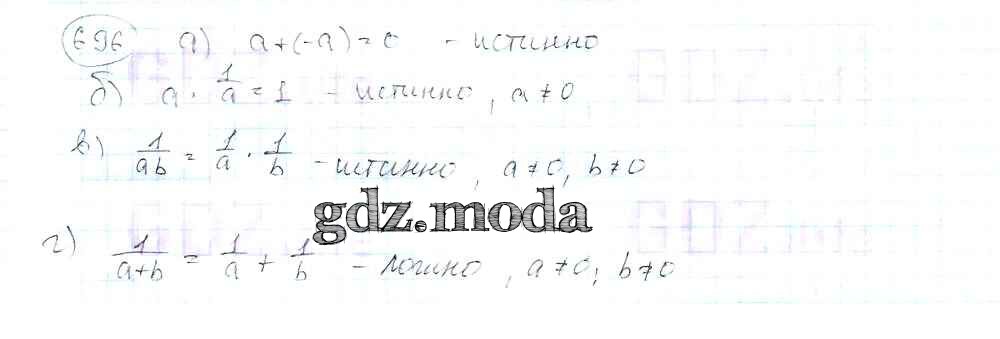 696 а) a+(-a)=0 - истинно
б) a · 1/a = 1 - истинно, a≠0
в) 1/ab = 1/a · 1/b - истинно, a≠0, b≠0
gdz.moda
г) 1/a+b = 1/a + 1/b - ложно, a≠0; b≠0